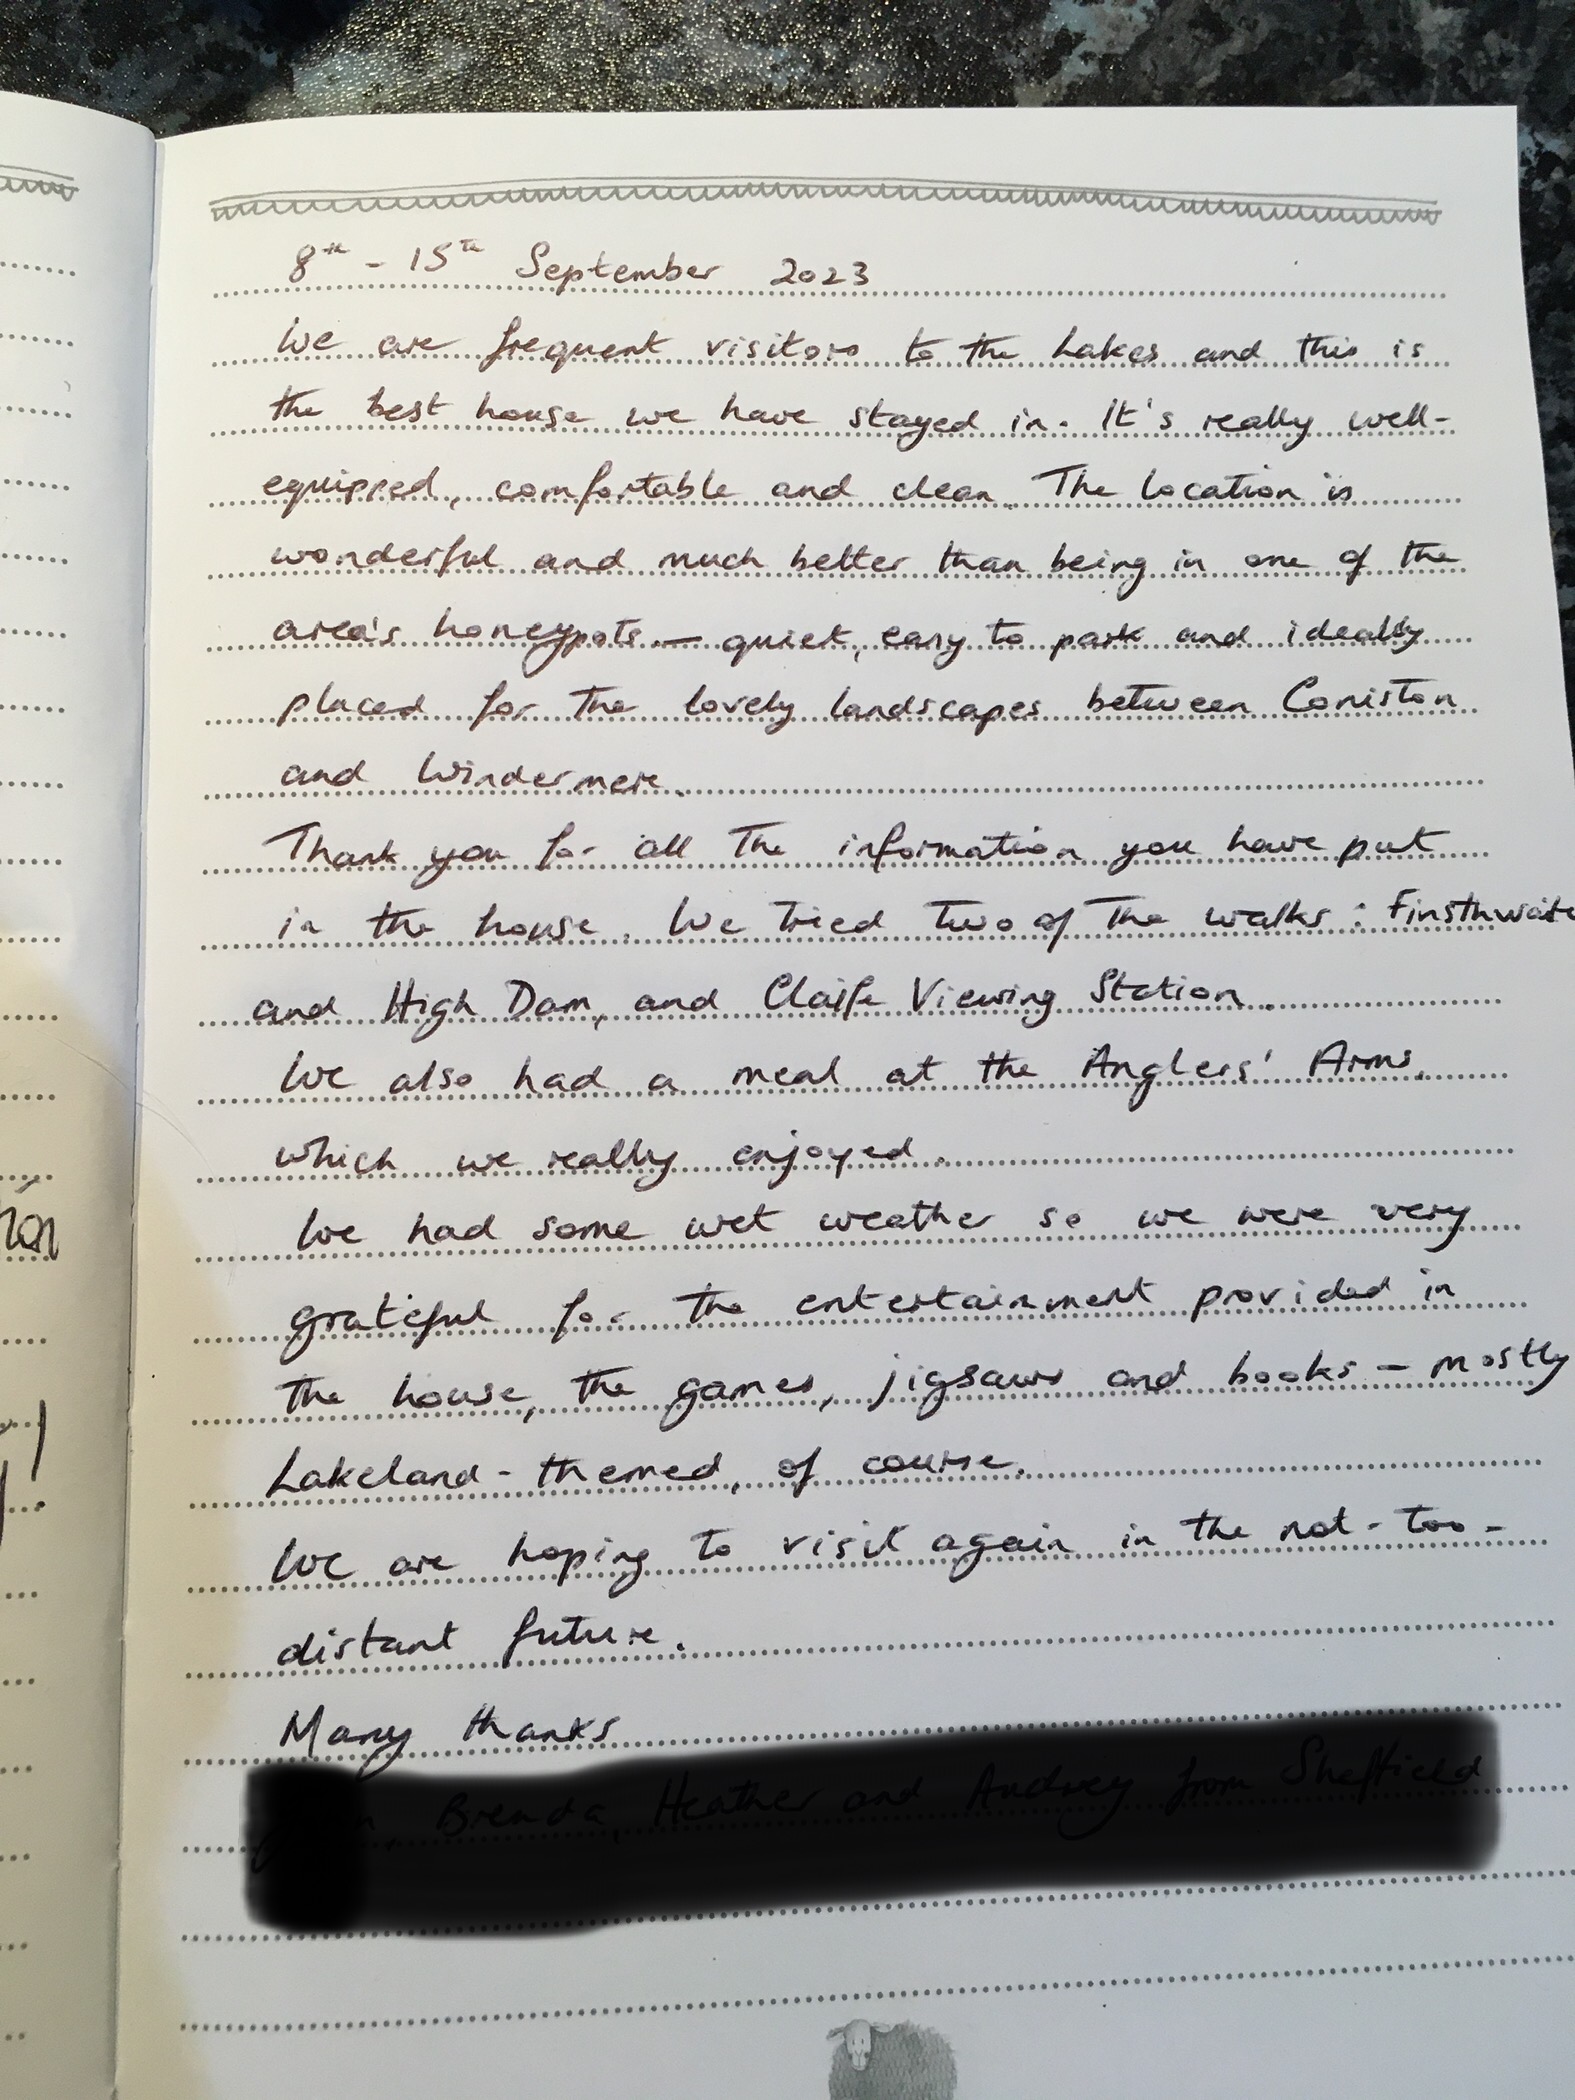 8th - 15th September 2023
We are frequent visitors to the Lakes and this is
the best house we have stayed in. It's really well-
equipped, comfortable and clean. The location is
wonderful and much better than being in one of the
area's honeypots — quiet, easy to park and ideally
placed for the lovely landscapes between Coniston
and Windermere.
Thank you for all the information you have put
in the house. We tried two of the walks: Finsthwaite
and High Dam, and Claife Viewing Station.
We also had a meal at the Anglers' Arms,
which we really enjoyed.
We had some wet weather so we were very
grateful for the entertainment provided in
the house, the games, jigsaws and books — mostly
Lakeland-themed, of course.
We are hoping to visit again in the not-too-
distant future.
Many thanks